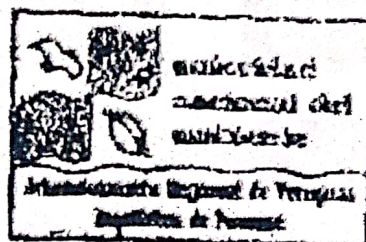 autoridad
nacional del
ambiente
Administración Regional de Veraguas
República de Panamá